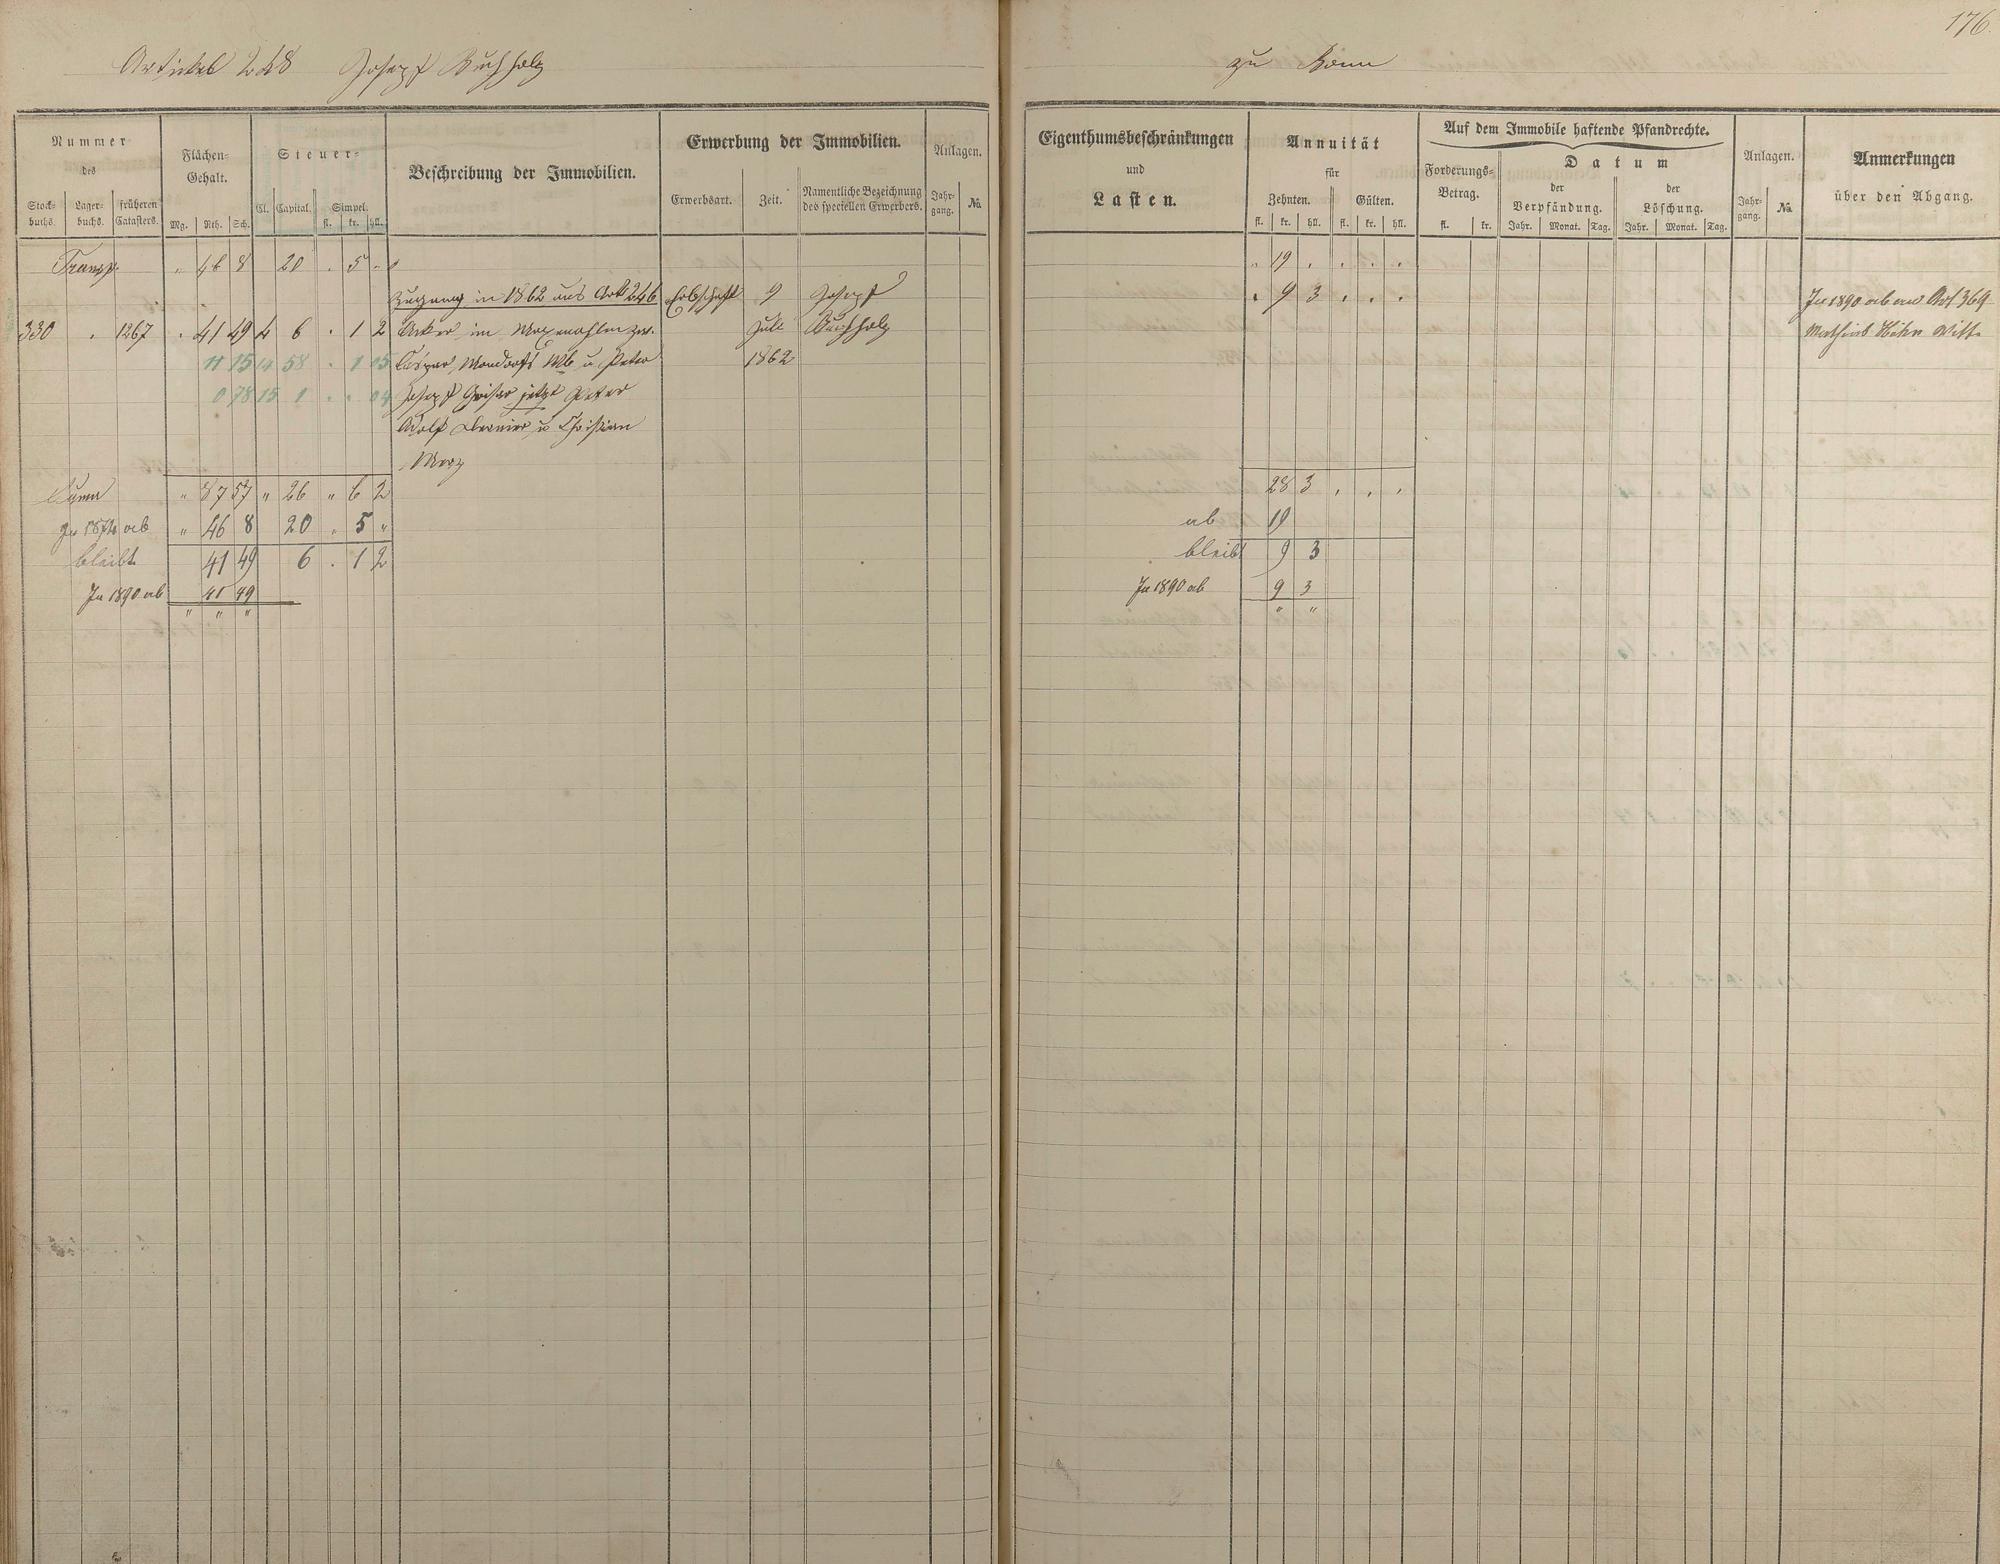 176.
Artickel 248 Joseph Buchholz zu Bonn
Nummer des
Stock-buchs. Lager-buchs. früheren Catasters.
Flächen-Gehalt.
Mg. Rth. Sch.
Steuer-
Cl. Capital. Simpel.
fl. kr. hll.
Beschreibung der Immobilien.
Erwerbung der Immobilien.
Erwerbsart. Zeit. Namentliche Bezeichnung des speciellen Erwerbers.
Anlagen.
Jahr-gang. No.
Eigenthumsbeschränkungen
und
Lasten.
Annuität
für
Zehnten. Gülten.
fl. kr. hll. fl. kr. hll.
Auf dem Immobile haftende Pfandrechte.
Forderungs-Betrag. Datum
fl. kr.
der Verpfändung. der Löschung.
Jahr. Monat. Tag. Jahr. Monat. Tag.
Anlagen.
Jahr-gang. No.
Anmerkungen
über den Abgang.
Transp. " 46 8 20 . 5 " 19 . . . .
Zugang in 1862 aus Art 246 Erbschaft 9 Joseph " 9 3 . . . In 1890 ab an Art 369
330 . 1267 . 41 49 4 6 . 1 2 Acker im Juli Buchholz
11 15 14 58 . 1 05 Caspar Mondorfs Wb u Peter 1862
0 78 15 1 . . 04 Joseph jetzt Peter
Adolf u Christian
Suma " 87 57 " 26 " 6 2 28 3 . . .
In 1874 ab " 46 8 20 . 5 " ab 19
bleibt 41 49 6 . 1 2 bleibt 9 3
In 1890 ab 41 49 In 1890 ab 9 3
" " " " "